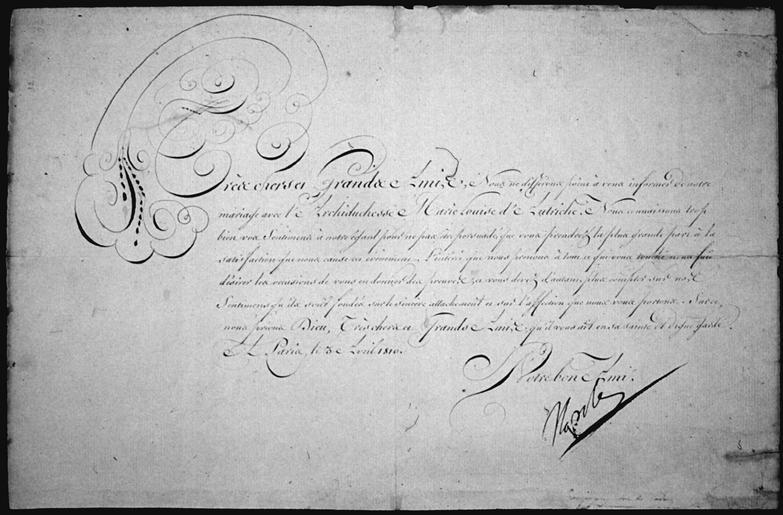 Très chers et Grands Amis, Nous ne différons point à vous informer de notre
mariage avec l'Archiduchesse Marie Louise d'Autriche. Nous connaissons trop
bien vos Sentimens à notre égard pour ne pas être persuadé, que vous prendrez la plus grande part à la
satisfaction que nous cause cet évènement. L'intérêt que nous prenons à tout ce qui vous touche nous fait
désirer les occasions de vous en donner des preuves, et vous devez d'autant plus compter sur nos
Sentimens qu'ils sont fondés sur le sincère attachement et sur l'affection que nous vous portons. Sur ce,
nous prions Dieu, Très chers et Grands Amis, qu'il vous ait en sa sainte et digne garde.
A Paris, le 3 Avril 1810.
Votre bon Ami.